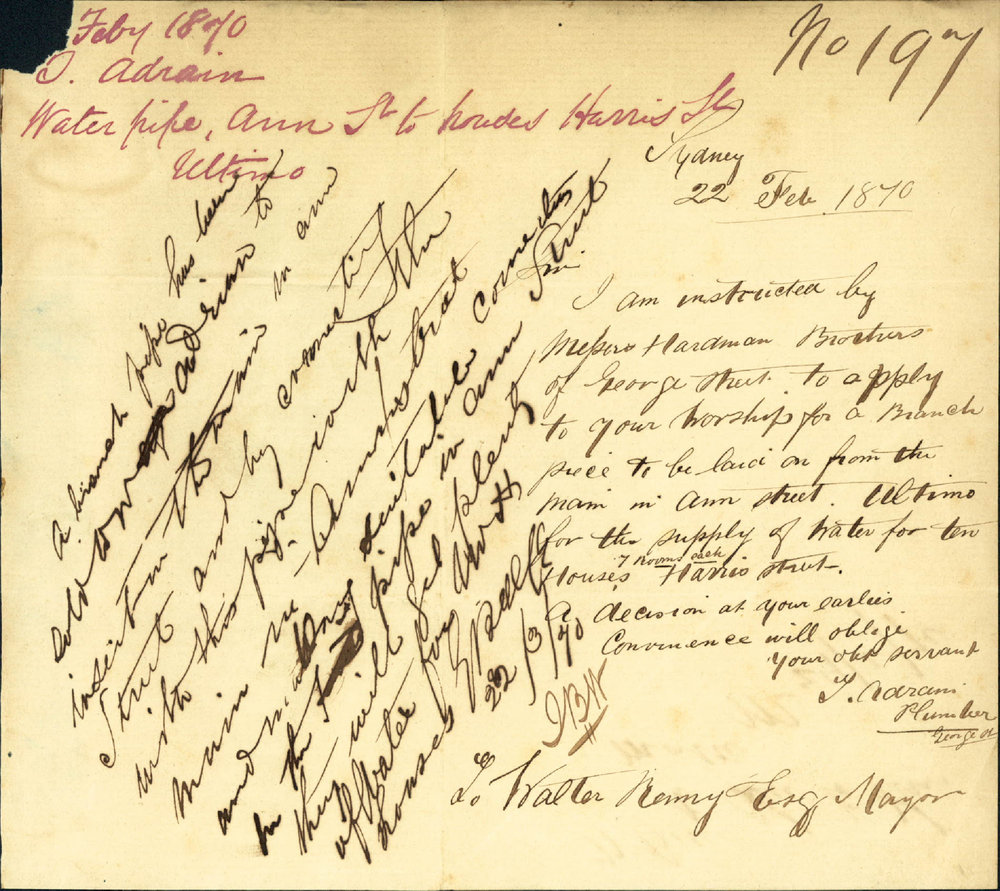 Feby 1870
T. Adrain
Water pipe, Ann St to houses Harris St
Ultimo
No 197
Sydney
22 Feb 1870
Sir
I am instructed by
Messrs Hardman Brothers
of George Street to apply
to your Worship for a Branch
piece to be laid on from the
main in Ann street. Ultimo
for the supply of Water for ten
Houses 7 rooms each Harris street.
A decision at your earlies
Convenence will oblige
your obt servant
T. Adrain
Plumber
George St
To Walter Renny Esq Mayor
A branch pipe has been
laid down by Adrian to
insertion the main in Ann
Street and by connecting
with this pipe with the
main in
and making suitable connection
in the pipe in Ann Street
they will get plenty
of Water for the
houses
22/3/70